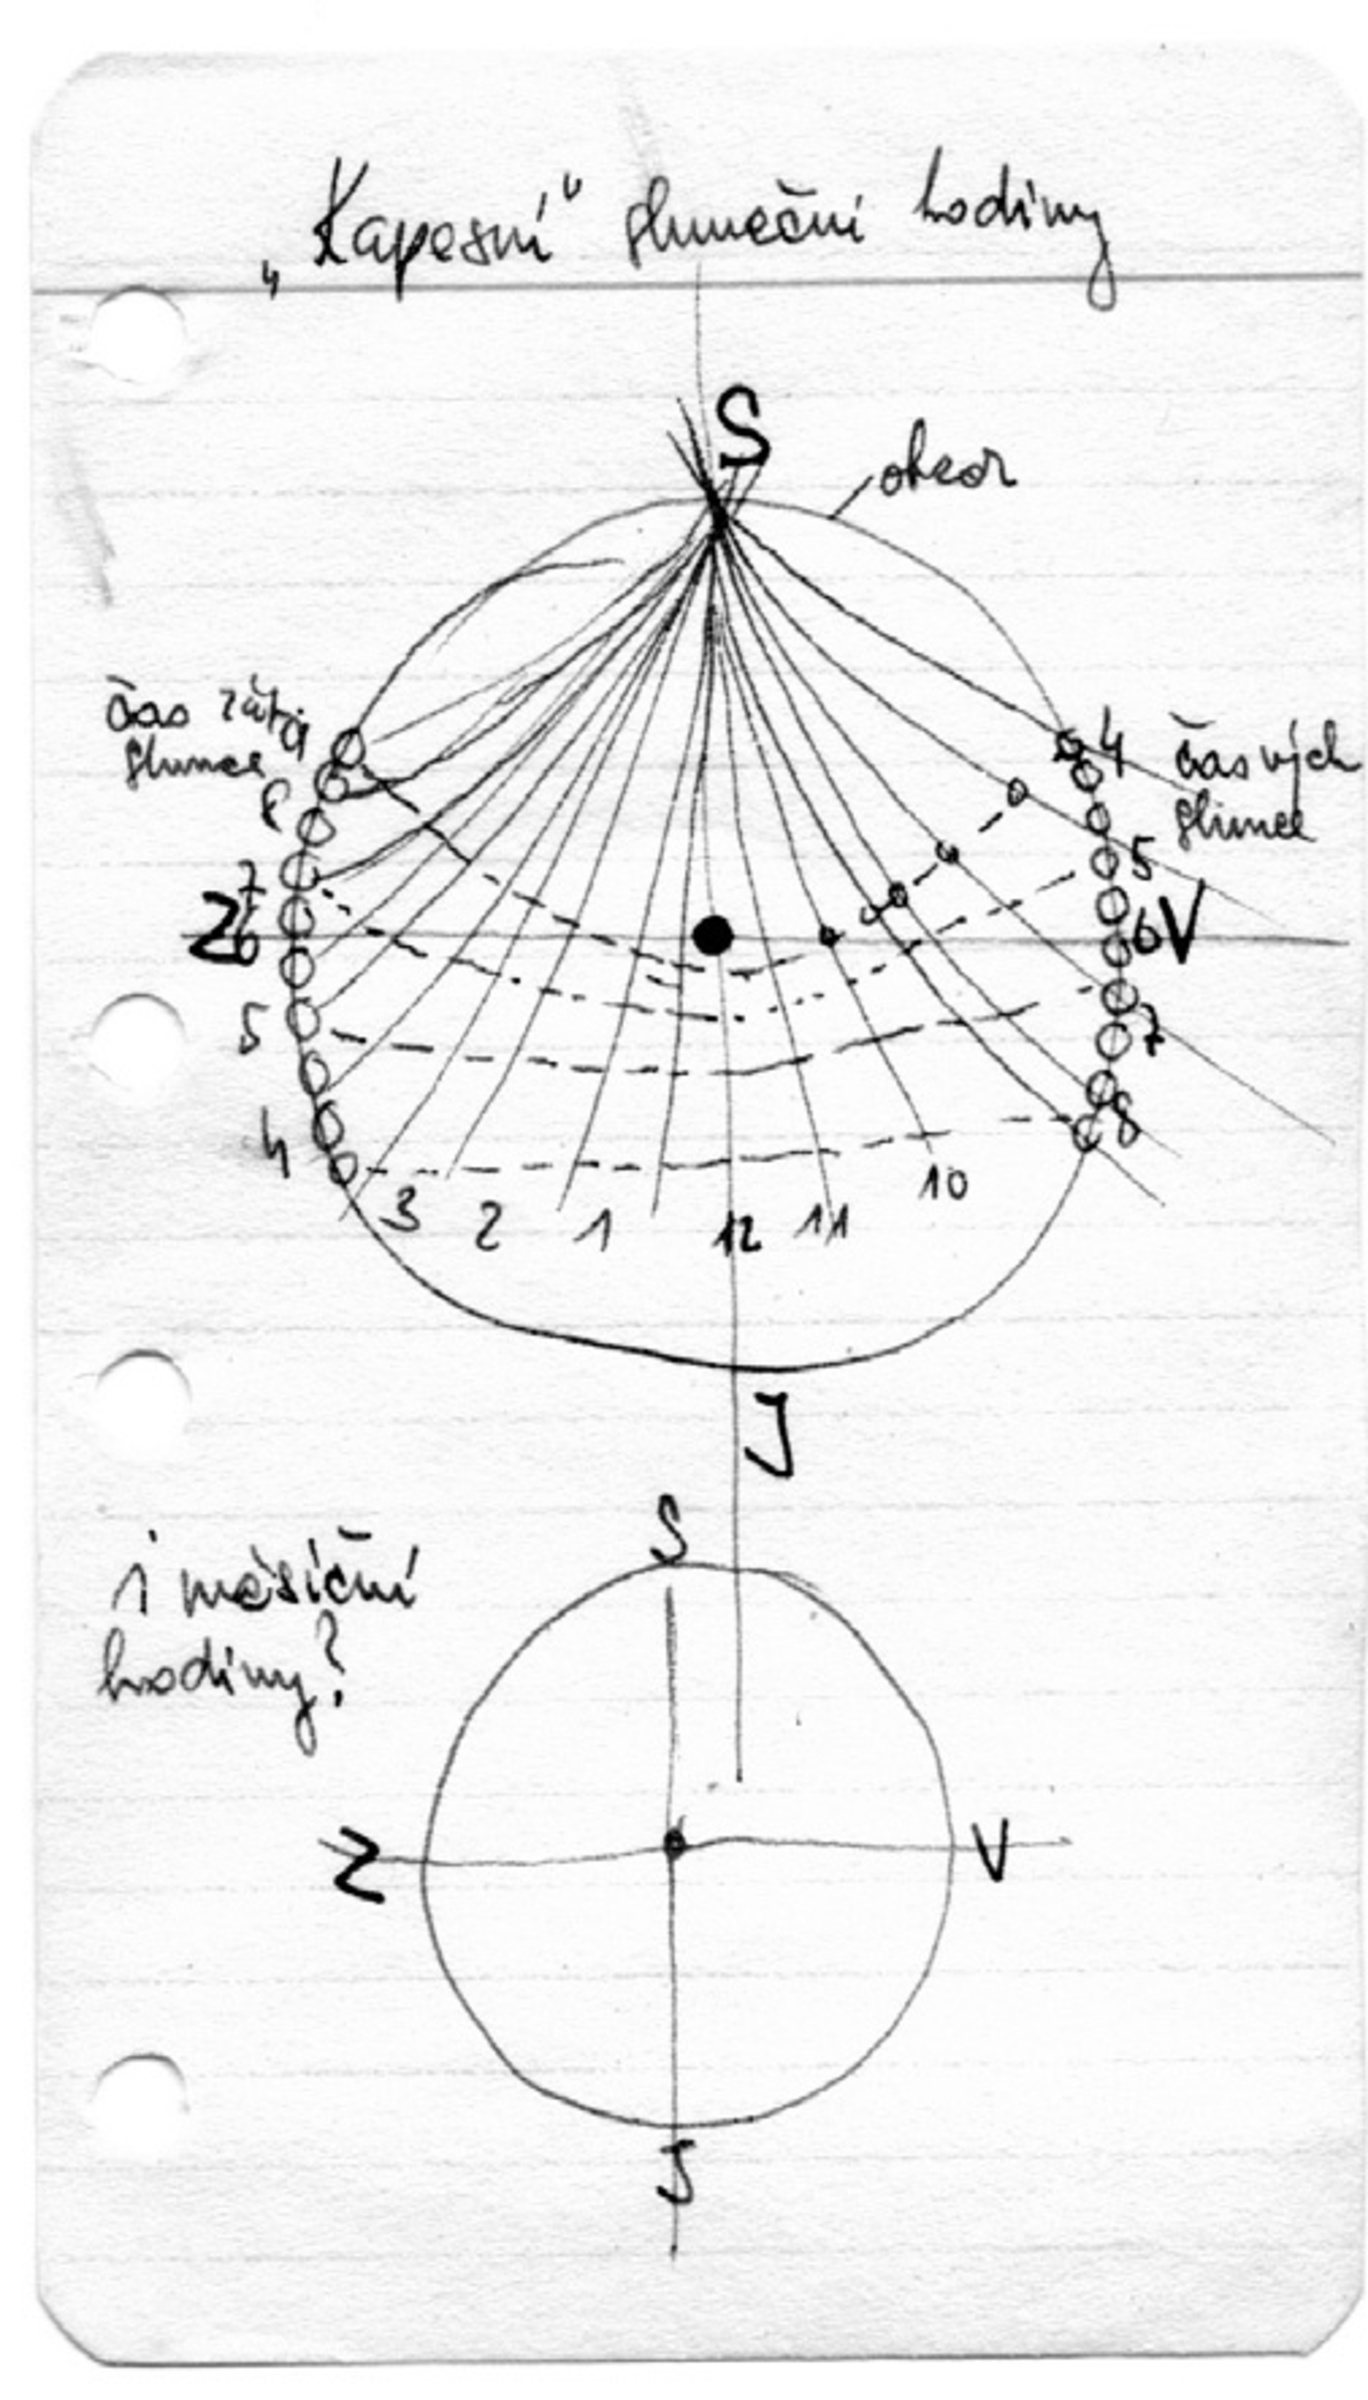 „Kapesní“ sluneční hodiny
S
obzor
čas západu
slunce
čas vých
slunce
8
4
7
5
Z
6
6
V
5
7
4
8
3
2
1
12
11
10
J
i měsíční
hodiny?
S
Z
V
J